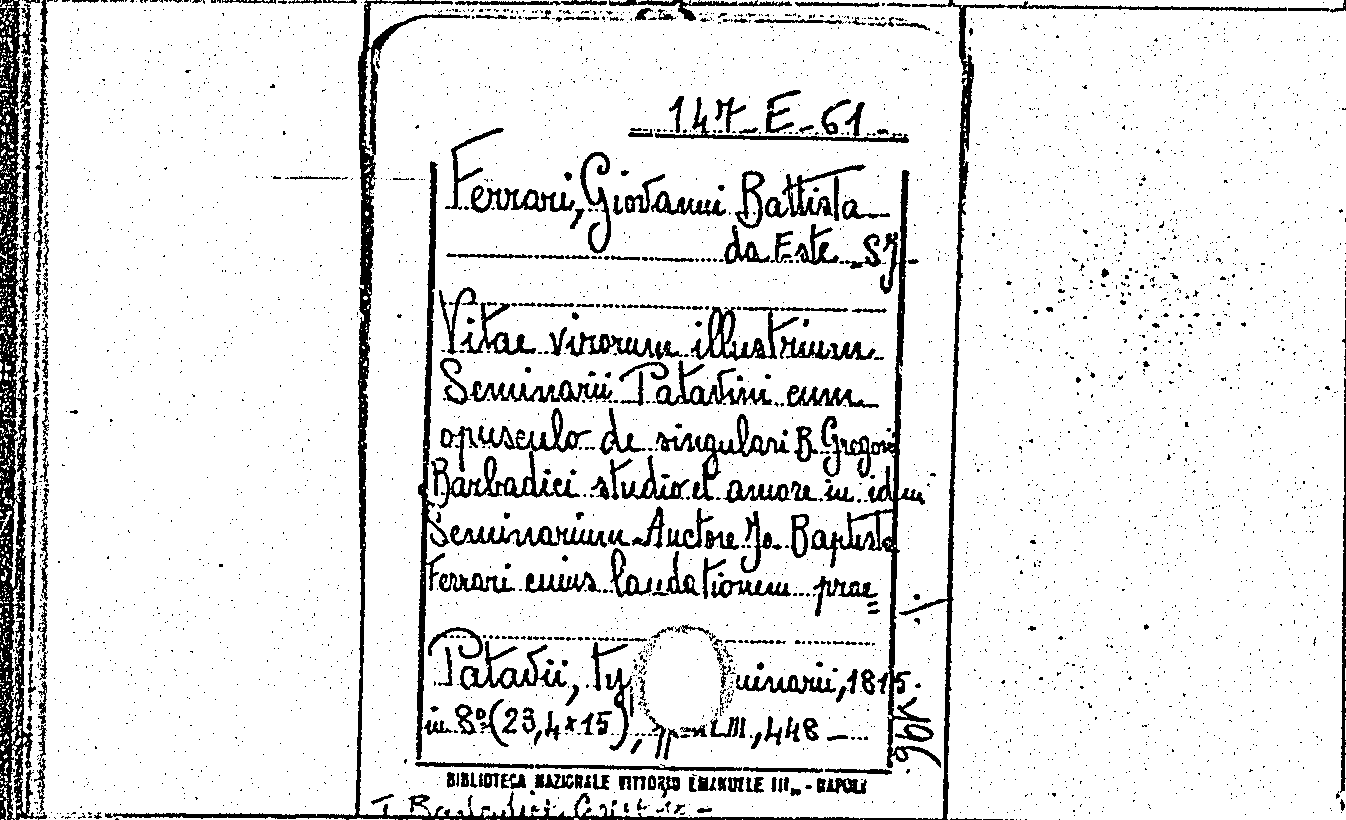 147 - E - 61 -
Ferrari, Giovanni Battista
da Este - SJ -
Vitae virorum illustrium
Seminarii Patavini cum
opusculo de singulari B. Gregorii
Barbadici studio et amore in idem
Seminarium Auctore Jo. Baptista
Ferrari cuius laudationem prae=
Patavii, Ty inarii, 1815.
in 8º (23,4x15), pp. LIII, 448 -
BIBLIOTECA NAZIONALE VITTORIO EMANUELE III - NAPOLI